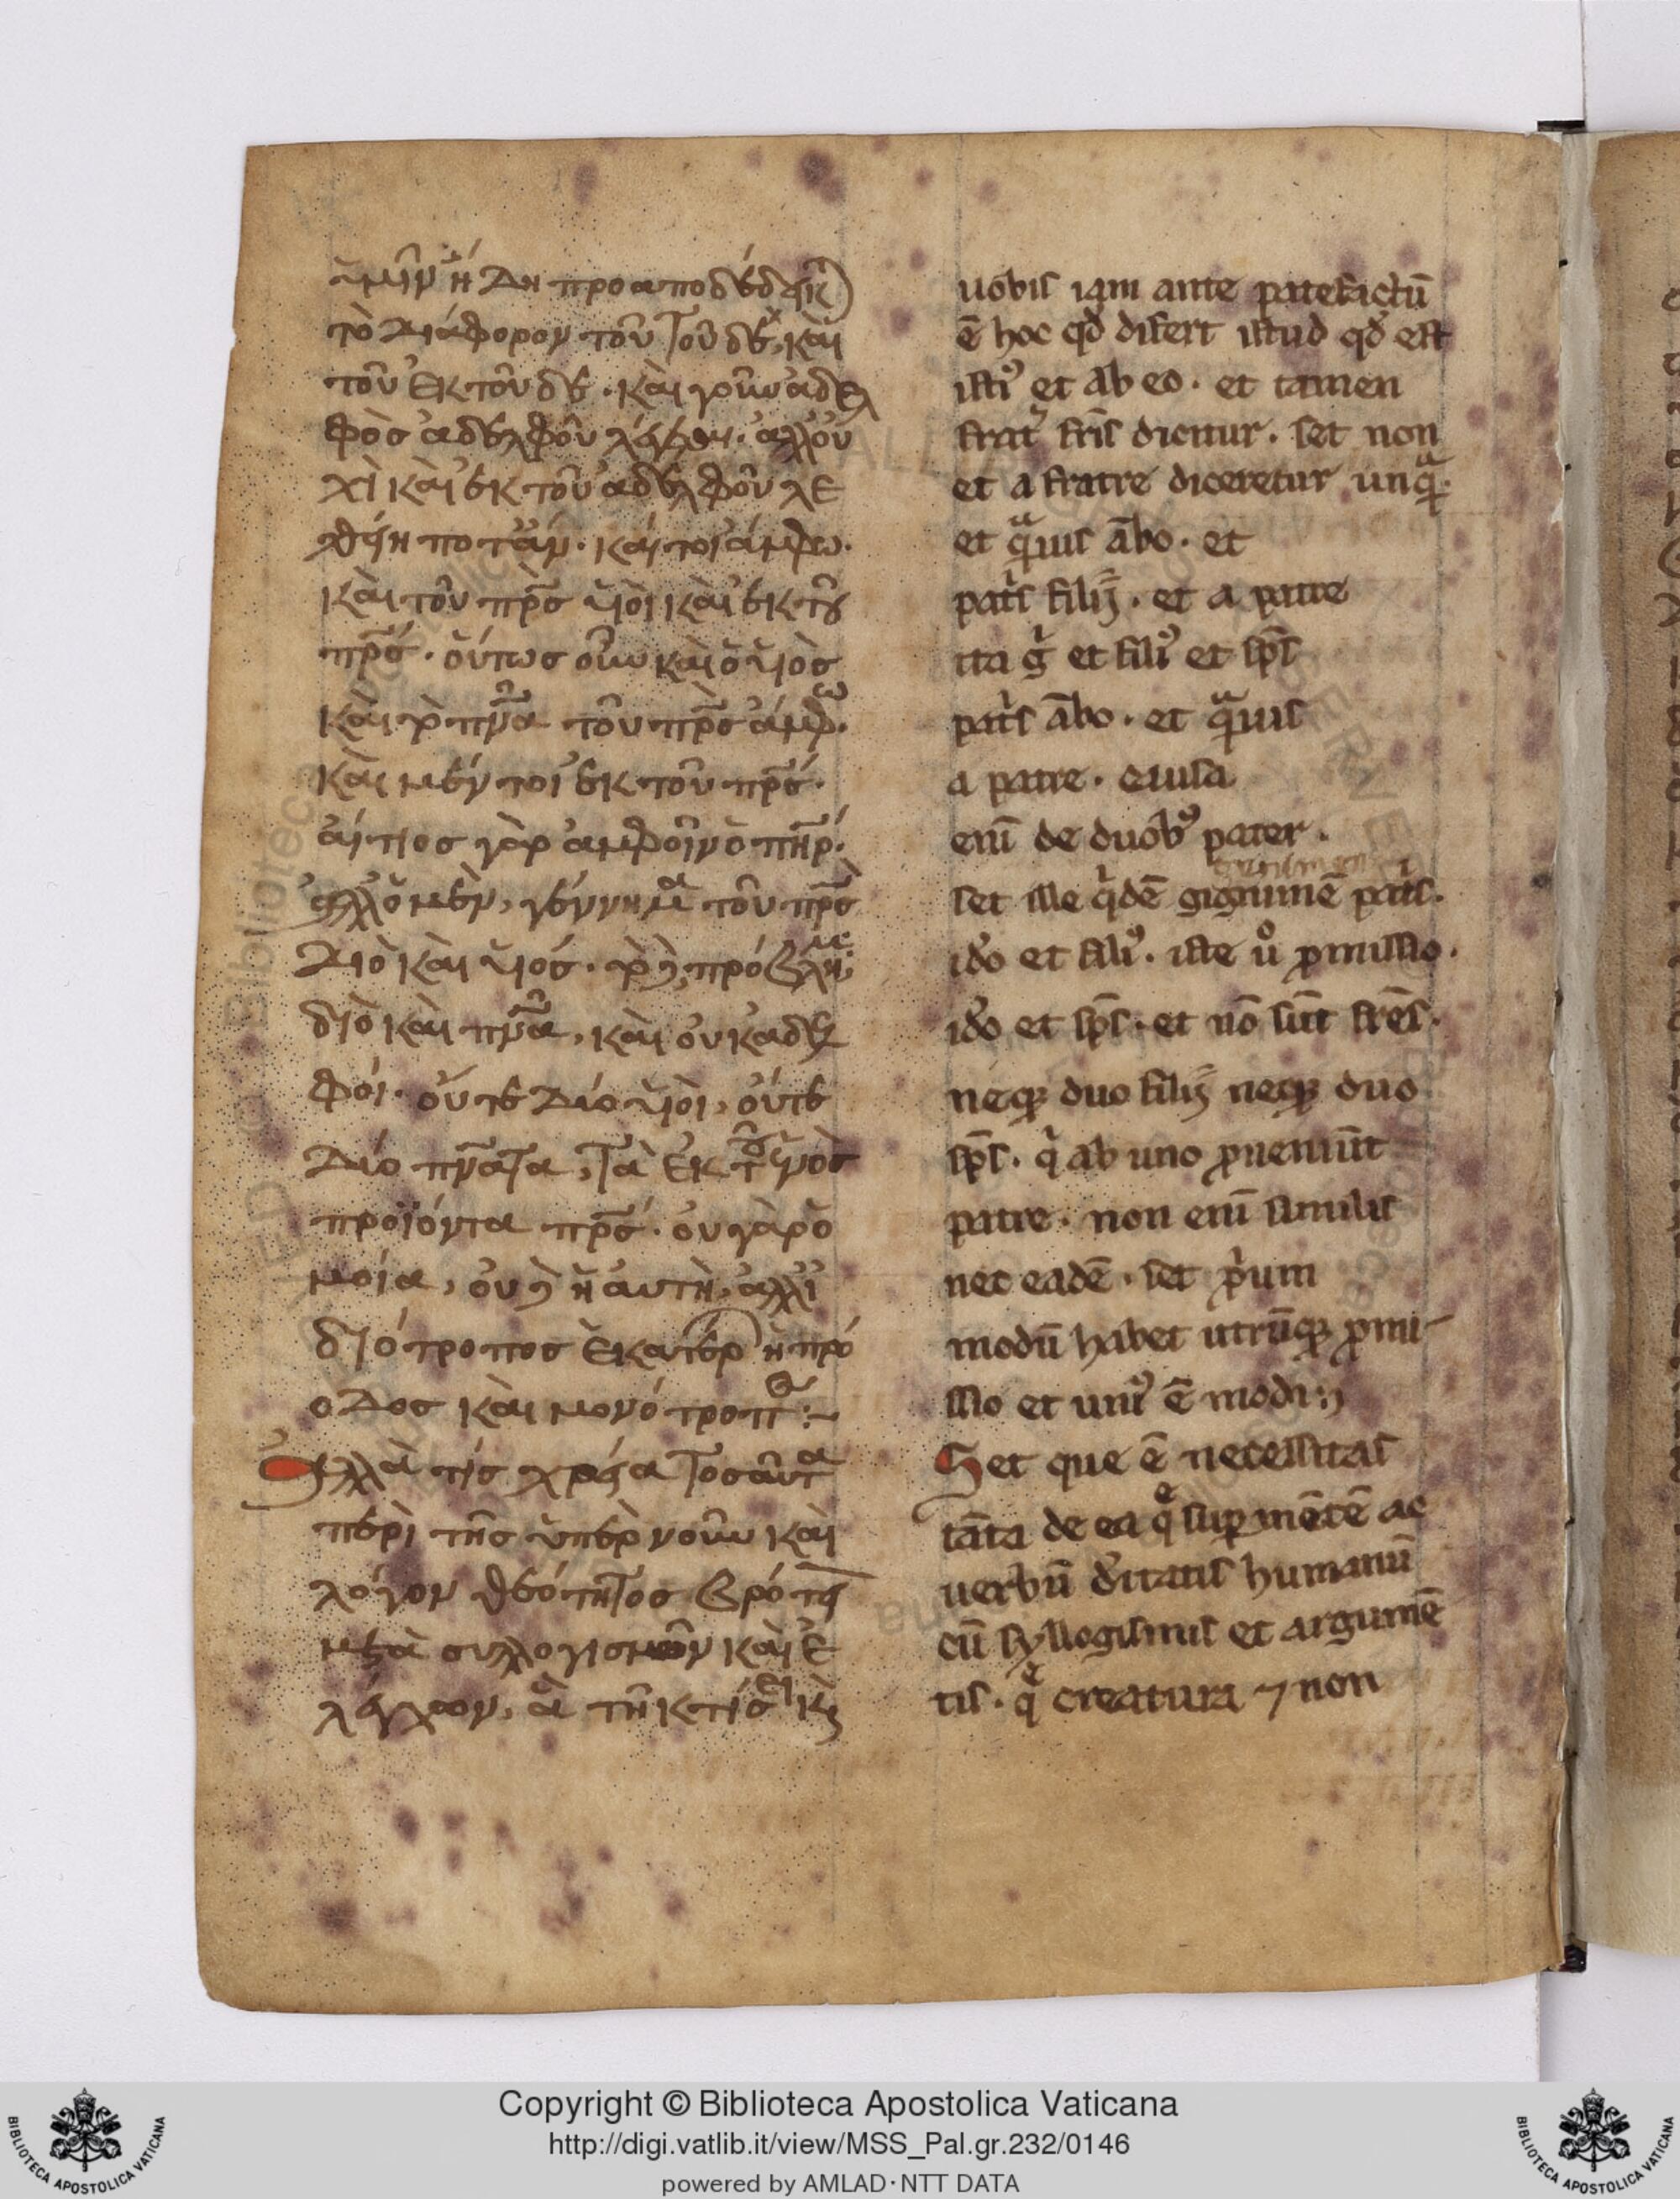 ὑμῖν ἤδη προαποδέδεικ
τὸ διάφορον τοῦ τοῦδε, καὶ
τοῦ ἐκ τοῦδε. καὶ γοῦν ἀδελ
φὸς ἀδελφοῦ λέγεται. ἀλλ οὐ
χὶ καὶ ἐκ τοῦ ἀδελφοῦ λε
χθείη ποτ ἄν. καίτοι ἄμφω.
καὶ τοῦ πρς υἱοὶ καὶ ἐκ τοῦ
πρς. οὕτως οὖν καὶ ὁ υἱὸς
καὶ τὸ πνα τοῦ πρς ἄμφω.
καὶ μέντοι ἐκ τοῦ πρς.
αἴτιος γὰρ ἀμφοῖν ὁ πηρ.
ἀλλ ὁ μὲν, γέννημα τοῦ πρς
διὸ καὶ υἱός. τὸ δὲ, πρόβλημα.
διὸ καὶ πνα, καὶ οὐκ ἀδελ
φοί. οὔτε δύο υἱοὶ, οὔτε
δύο πνατα, τὰ ἐκ τοῦ ἑνὸς
προϊόντα πρς. οὐ γὰρ ὁ
μοία, οὐδ ἡ αὐτὴ, ἀλλ ἰ
διότροπος ἑκατέρ ἡ πρό
οδος καὶ μονότροπ
Ἀλλὰ τίς χρεία τοσαῦτα
περὶ τῆς ὑπὲρ νοῦν καὶ
λόγον θεότητος βροτεί
μετὰ συλλογισμῶν καὶ ἐ
λέγχων, ἃ τῆ κτίσει καὶ
uobis iam ante patefactū
ē hoc qd̄ difert istud qd̄ est
isti᾿ et ab eo. et tamen
frat᾿ fr̄is dicitur. set non
et a fratre diceretur unqᵃ.
et qᵃuis ābo. et
pat᾿s filij. et a patre
ita g᾿ et fili᾿ et sp̄s
pat᾿s ābo. et qᵃuis
a patre. causa
enī de duob᾿ pater.
genimen
set ille q᾿dē gignimē pat᾿s.
ido et fili᾿. iste uº ꝓmissio.
ido et sp̄s. et nō sūt fr̄es.
neqꝫ duo filij neqꝫ duo
sp̄s. q᾿ ab uno ꝓueniūt
patre. non enī similis
nec eadē. set p᾿um
modū habet utrūqꝫ ꝓmi-
ssio et uni᾿ ē modi:
Set que ē necessitas
tāta de ea q̄ suꝑ mētē ac
uerbū d᾿itatis humanū
cū syllogismis et argumē
tis. q̄ creatura ⁊ non
Copyright © Biblioteca Apostolica Vaticana
http://digi.vatlib.it/view/MSS_Pal.gr.232/0146
powered by AMLAD·NTT DATA
BIBLIOTECA APOSTOLICA VATICANA
BIBLIOTECA APOSTOLICA VATICANA